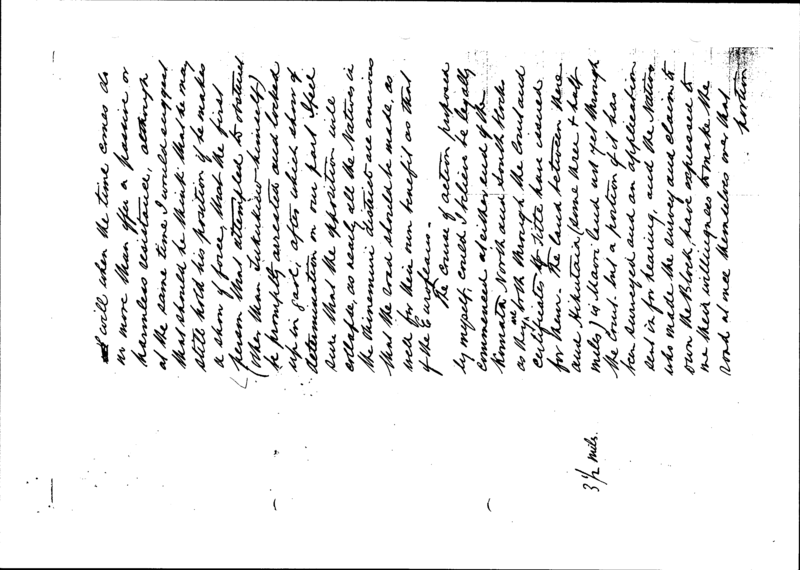 will when the time comes do
no more than offer a passive or
harmless resistance, although
at the same time I would suggest
that should he think that he may
still hold his position if he makes
a show of force, that the first
person that attempted to obstruct
(other than himself)
be promptly arrested and locked
up in gaol, after which show of
determination on our part I feel
sure that the opposition will
collapse, as nearly all the Natives in
the district are anxious
that the road should be made, as
well for their own benefit as that
of the Europeans.
The course of action proposed
by myself, could I believe be legally
commenced at either end of the
North and South Blocks
as they are both through the Court and
certificates of title have issued
for them. The land between these
and Hikutaia (some three & half
miles) is Maori land not yet through
the Court. but a portion of it has
been surveyed and an application
sent in for hearing. and the Natives
who made the survey and claim to
own the Block, have expressed to
me their willingness to make the
road at once themselves over that
portion
3 1/2 mils.